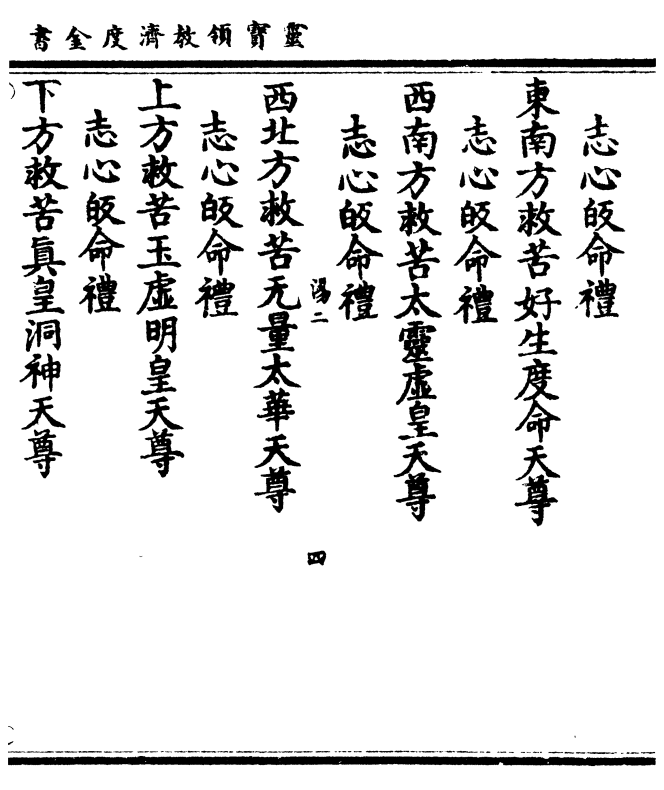 靈寶領教濟度金書
志心皈命禮
東南方救苦好生度命天尊
志心皈命禮
西南方救苦太靈虛皇天尊
志心皈命禮
湯二
四
西北方救苦无量太華天尊
志心皈命禮
上方救苦玉虛明皇天尊
志心皈命禮
下方救苦眞皇洞神天尊